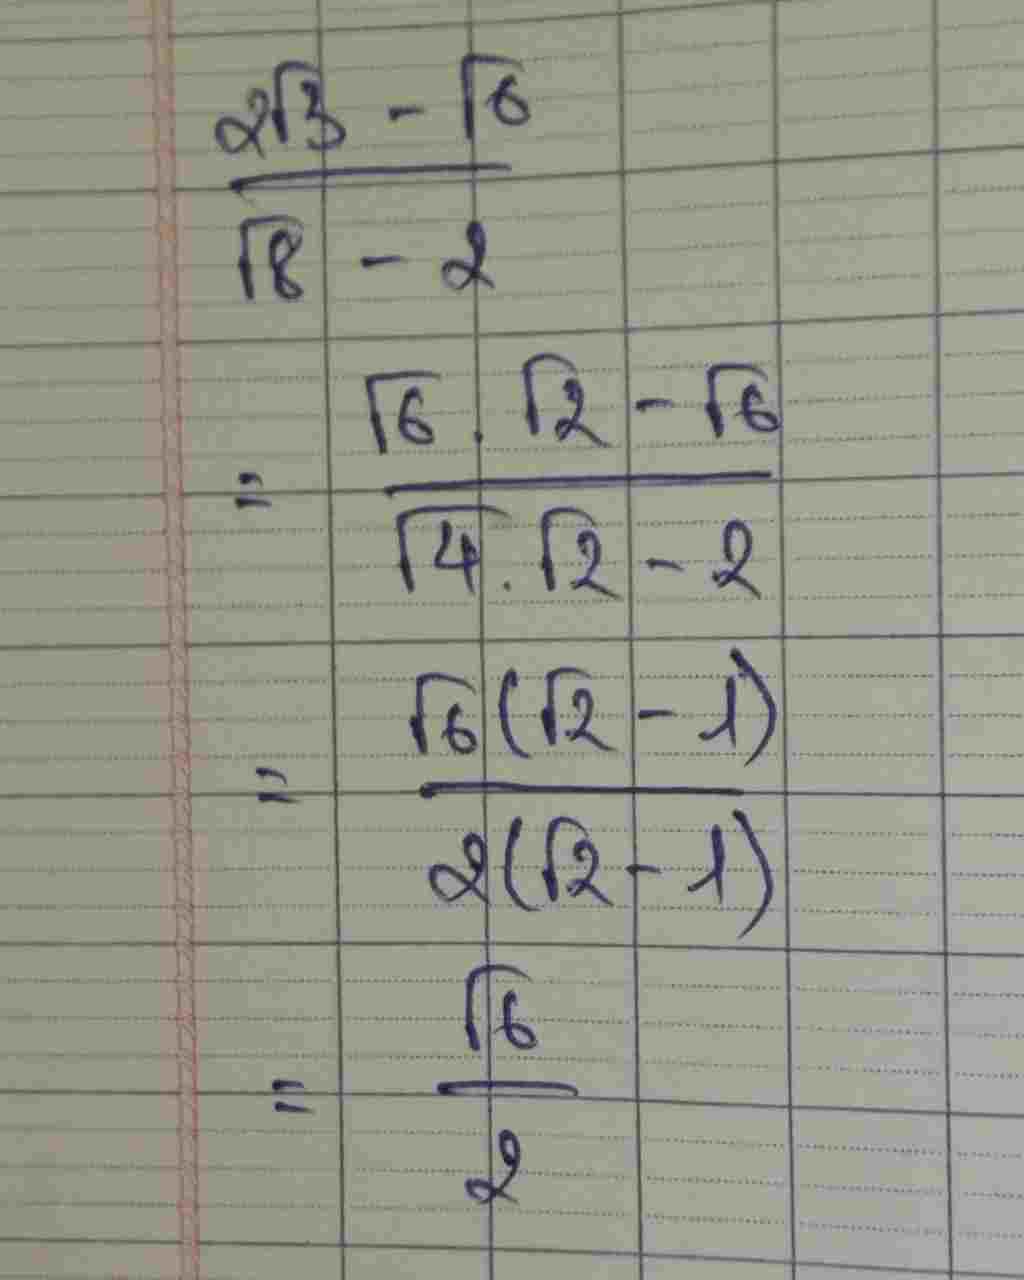 2√3 - √6
√8 - 2
= √6 . √2 - √6
√4 . √2 - 2
= √6 (√2 - 1)
2 (√2 - 1)
= √6
2